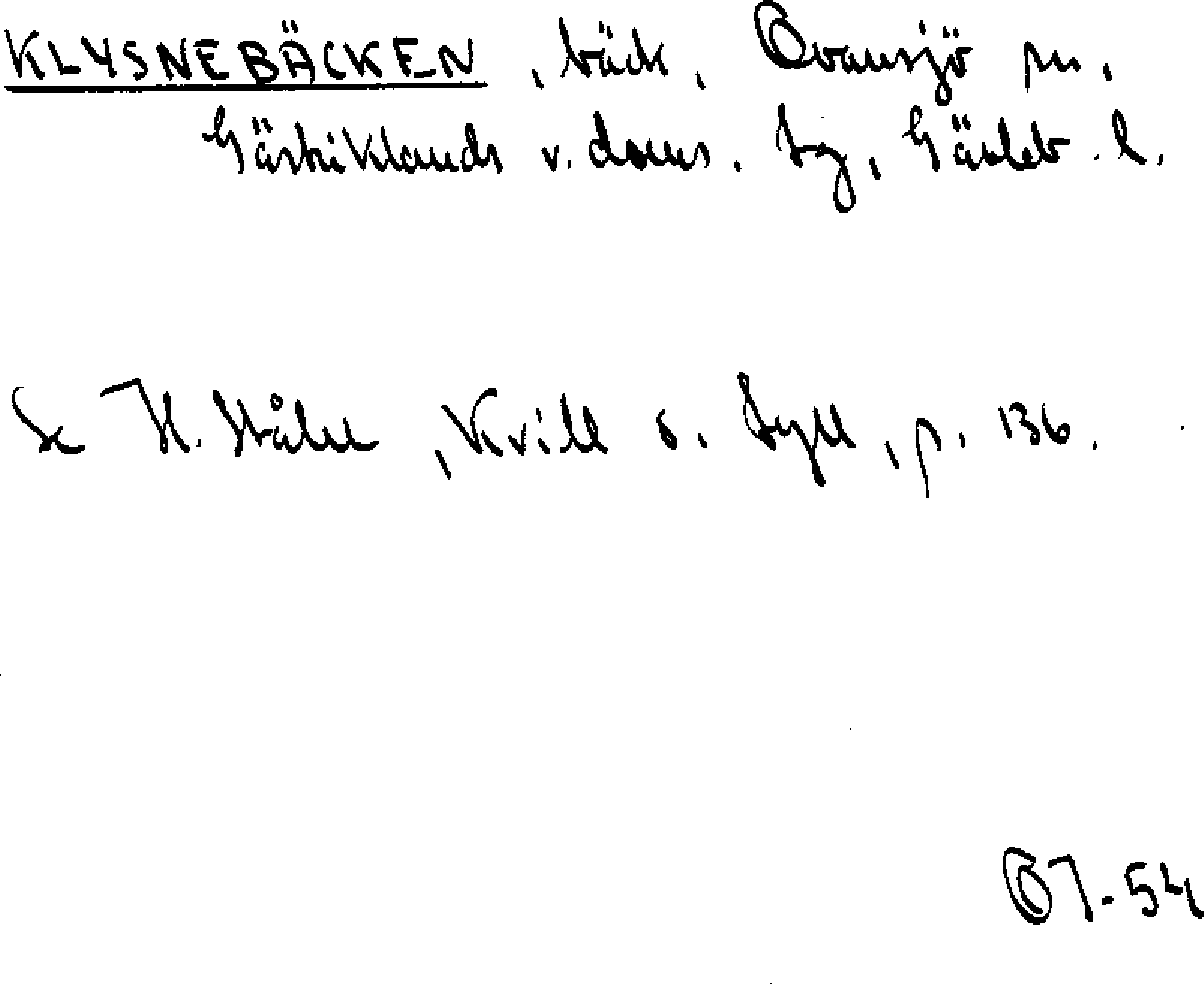 KLYSNEBÄCKEN, bäck, Ovansjö sn,
Gästriklands v. doms. tg, Gävleb. l.
Se H. Ståhl, Kvill o. tyll, p. 136.
OJ-54